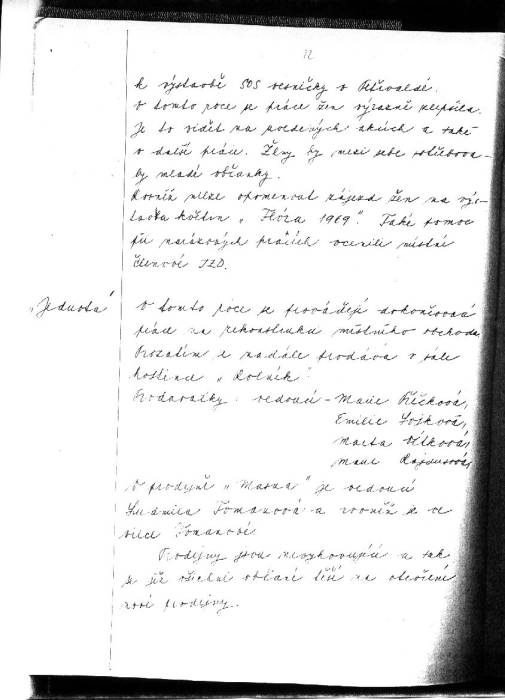 12
k výstavbě SOS vesničky v Petřvaldě.
V tomto roce se práce žen výrazně zlepšila.
Je to vidět na uvedených akcích a také
v další práci. Ženy by mezi sebe potřebova-
ly mladé občanky.
Rovněž nelze opomenout zájezd žen na výs-
tavku květin „Flóra 1969". Také pomoc
při nárazových pracích ocenili místní
členové JZD.
„Jednota" V tomto roce se provádějí dokončovací
práce na rekonstrukci místního obchodu.
Prozatím se nadále prodává v sále
hostince „Rolník".
Prodavačky: vedoucí - Marie
Emilie
Marta Vítková,
Marie
V prodejně „Masna" je vedoucí
Ludmila Tomanová a rovněž je ve
Tomanové.
Prodejny jsou nevyhovující a tak
se již všichni občané těší na otevření
nové prodejny.